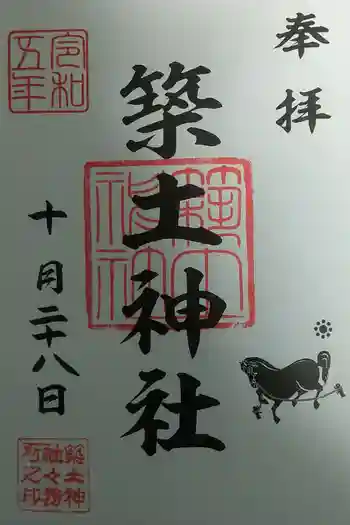 奉拝
築土神社
令和
五年
十月二十八日
築土
神社
築土神
社々務
所之印